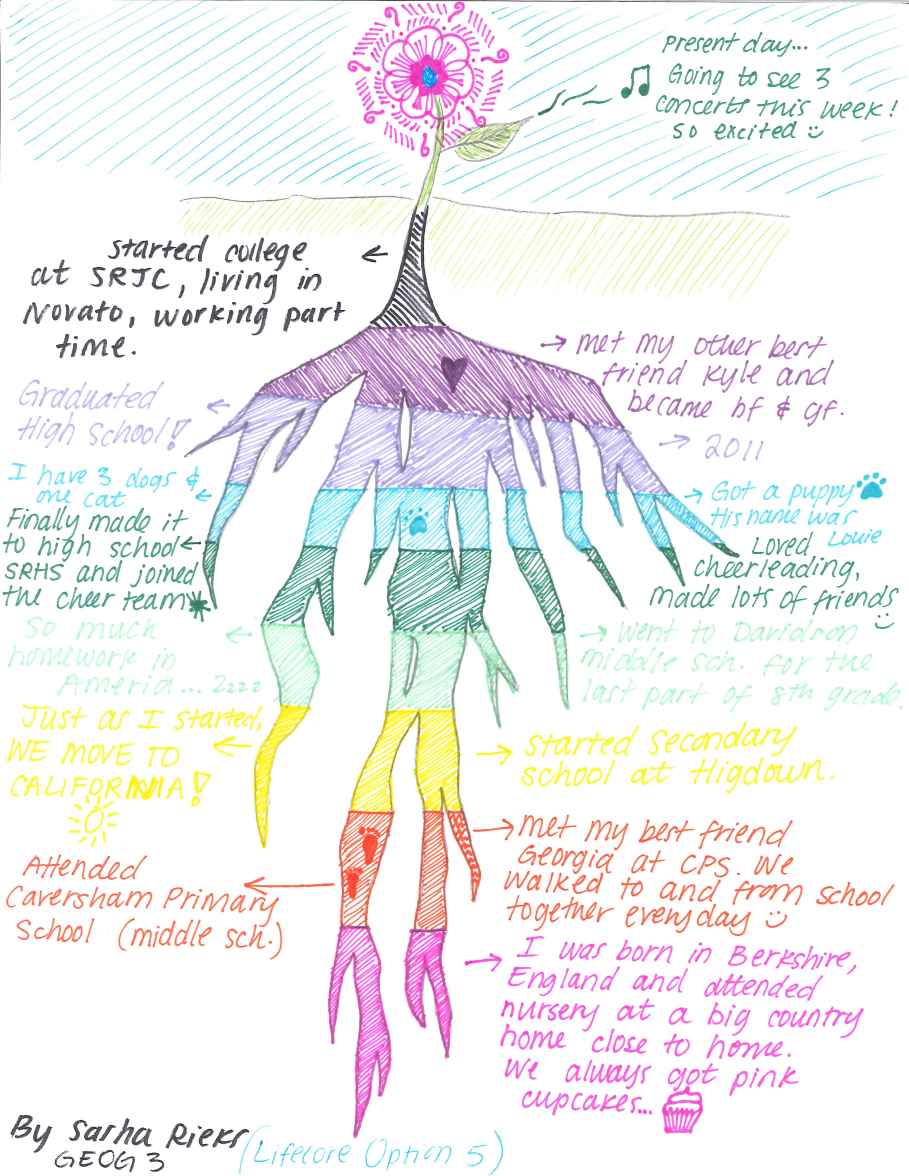 Present day...
Going to see 3
concerts this week!
so excited
Started college
at SRJC, living in
Novato, working part
time.
met my other best
friend Kyle and
became bf & gf.
Graduated
High School!
2011
I have 3 dogs &
one cat
Got a puppy
His name was
Louie
Finally made it
to high school
SRHS and joined
the cheer team
Loved
cheerleading,
made lots of friends
So much
homework in
Ameria... Zzzz
Went to Davidson
middle sch. for the
last part of 8th grade.
Just as I started,
WE MOVE TO
CALIFORNIA!
Started Secondary
school at Higdown.
Met my best friend
Georgia at CPS. We
walked to and from school
together everyday
Attended
Caversham Primary
School (middle sch.)
I was born in Berkshire,
England and attended
nursery at a big country
home close to home.
We always got pink
cupcakes...
By Sarha Rieks
GEOG 3
(Lifecore Option 5)